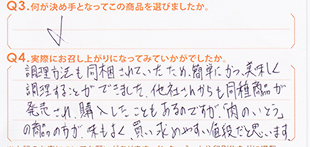 Q3.何が決め手となってこの商品を選びましたか。
Q4.実際にお召し上がりになってみていかがでしたか。
調理方法も同梱されていたため、簡単にかつ、美味しく
調理することができました。他社されからも同種商品が
発売され、購入したこともあるのですが、「肉のいとう」
の商品の方が味もよく買い求めやすい値段だと思います。